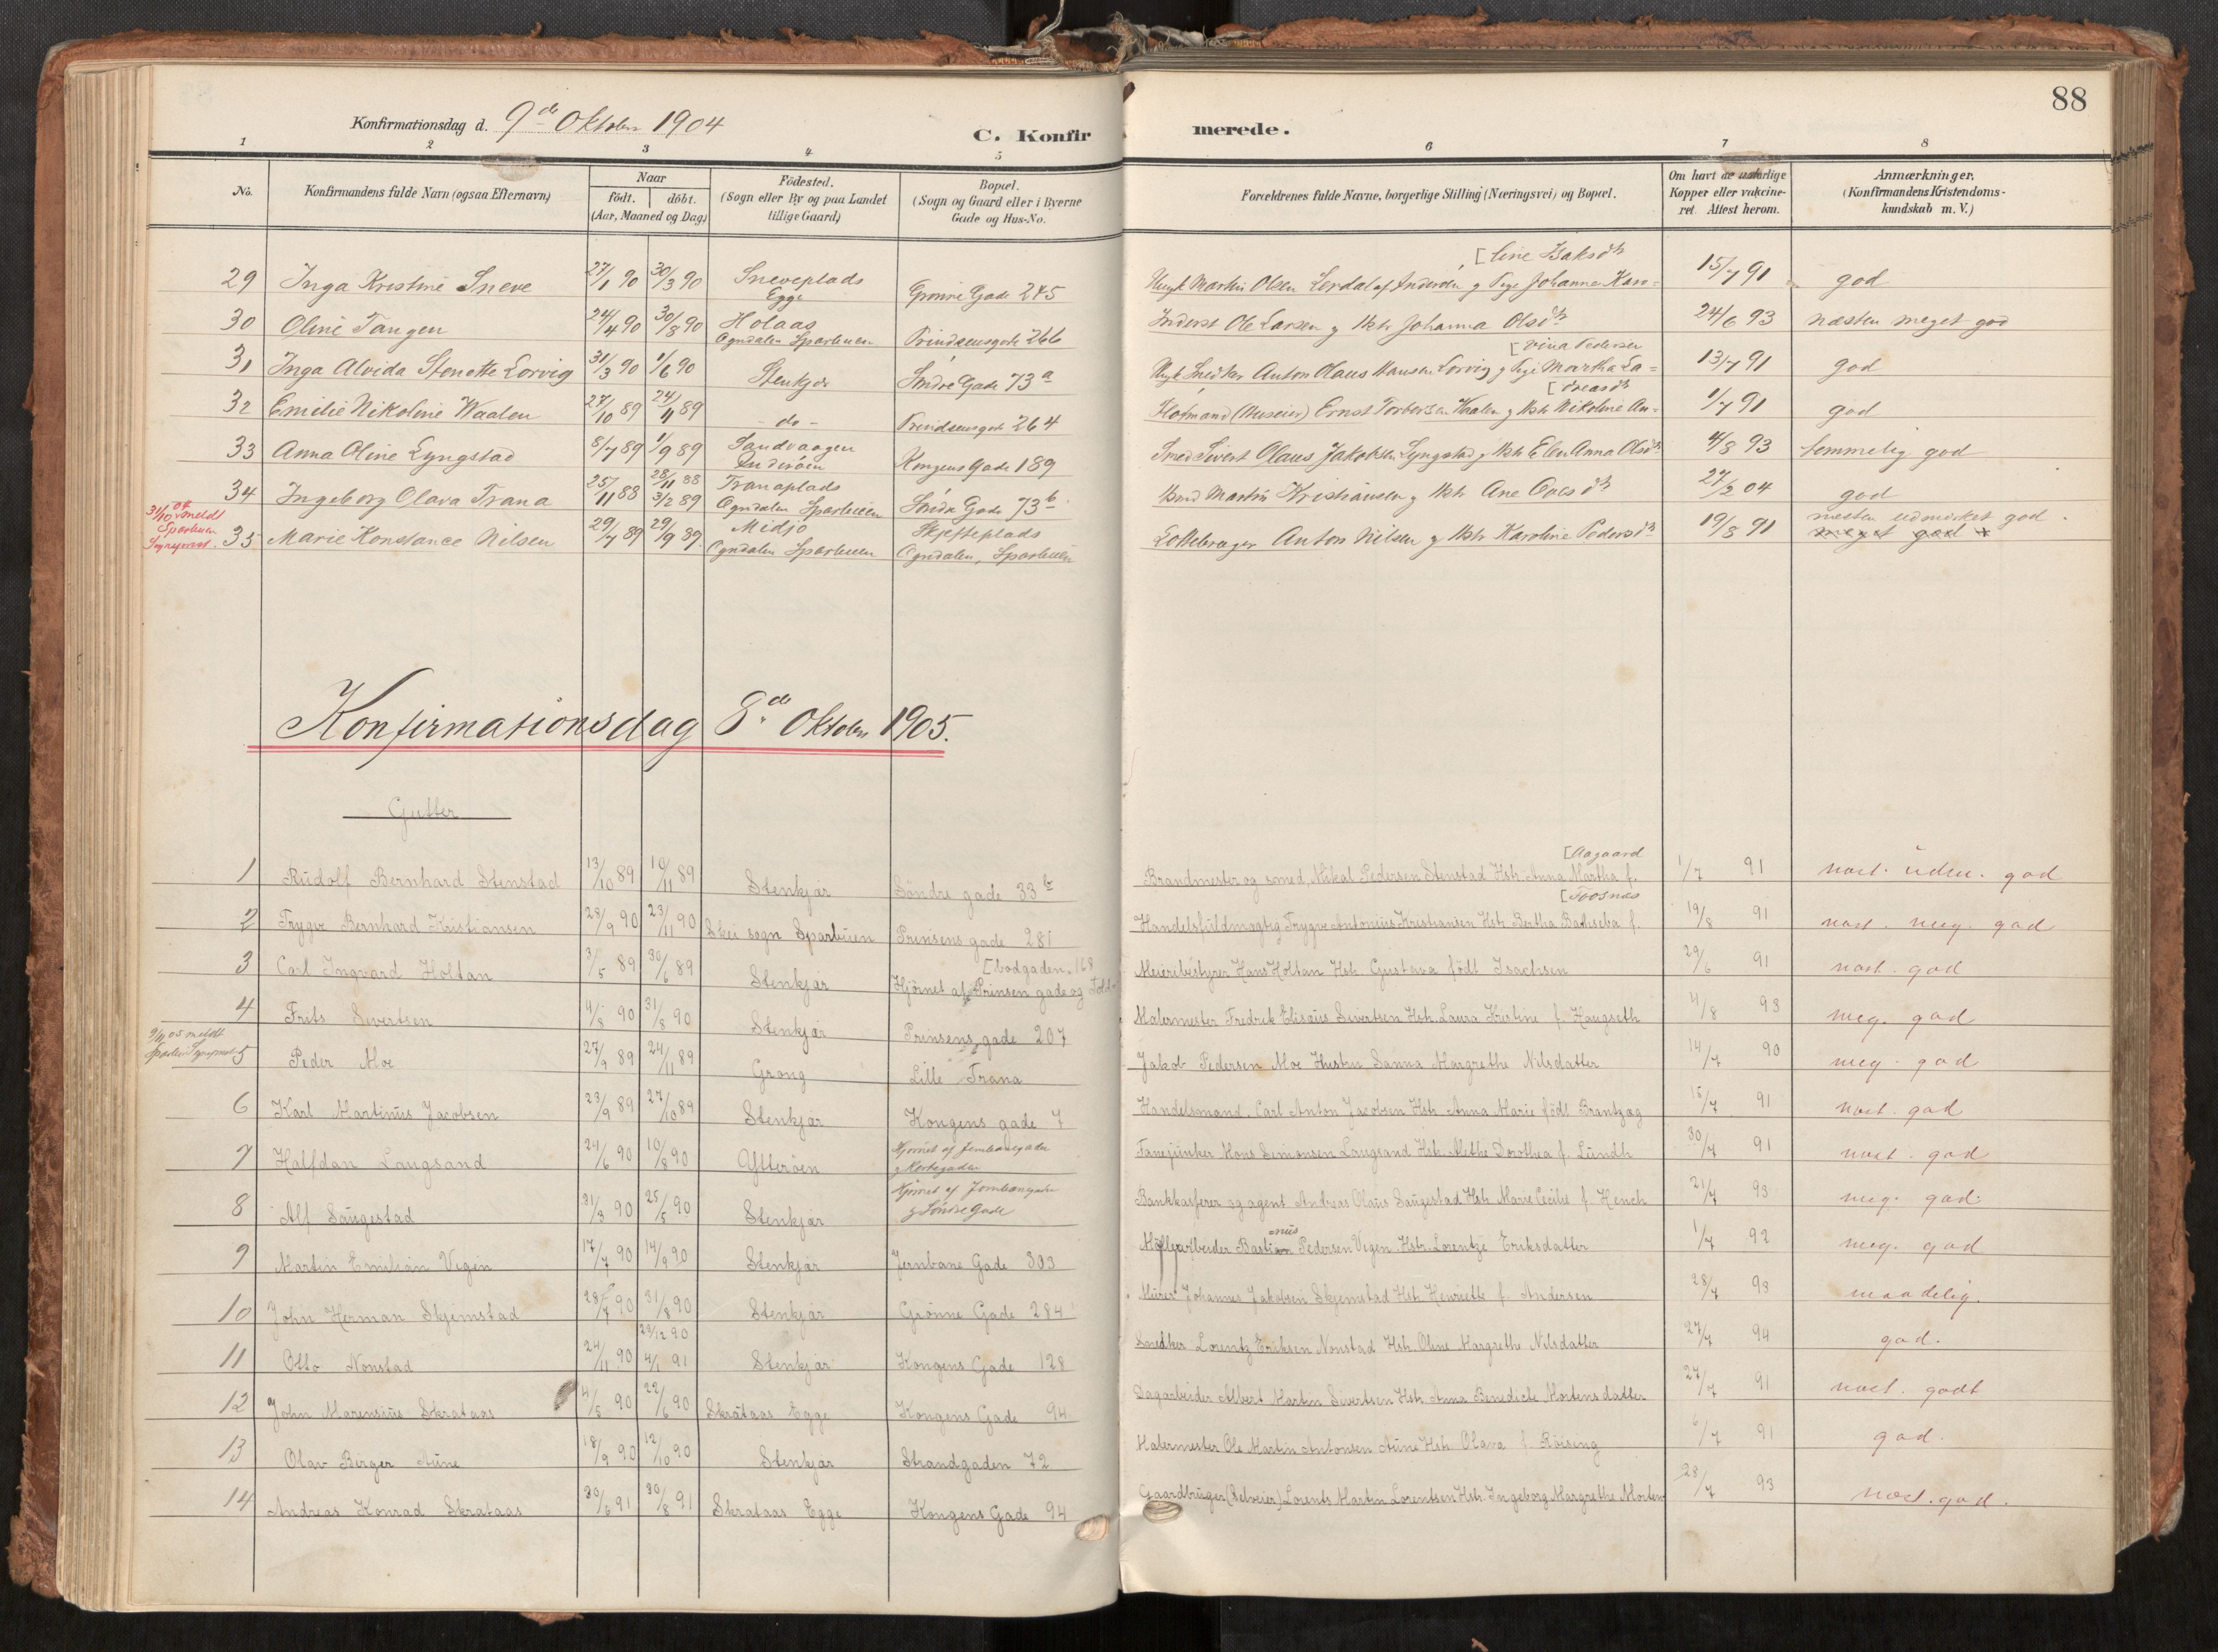 88
Konfirmationsdag d. 9de Oktober 1904
C. Konfirmerede.
1 2 3 4 5 6 7 8
No. Konfirmandens fulde Navn (ogsaa Efternavn) Naar født. døbt. (Aar, Maaned og Dag) Födested. (Sogn eller By og paa Landet tillige Gaard) Bopæl. (Sogn og Gaard eller i Byerne Gade og Hus-No. Forældrenes fulde Navne, borgerlige Stilling (Næringsvei) og Bopæl. Om havt de naturlige Kopper eller vakcineret. Attest herom. Anmærkninger. (Konfirmandens Kristendomskundskab m. V.)
29 Inga Kristine Sneve 27/1 90 30/3 90 Sneveplads Egge Grønne Gade 245 Ungk Martin Olsen Lerdal af Inderøen g Pige Johanna Karo= [line Isaksdtr 15/7 91 god
30 Oline Tangen 24/4 90 30/8 90 Holaas Ogndalen Sparbuen Prindsensgade 266 Inderst Ole Larsen g Hstr Johanna Olsdtr 24/6 93 næsten meget god
31 Inga Alvida Stenette Lorvig 31/3 90 1/6 90 Stenkjær Søndre Gade 73a Ungk Snedker Anton Olaus Hansen Lorvig g Pige Martha La= [vina Pedersen 13/7 91 god
32 Emilie Nikoline Waalen 27/10 89 24/11 89 - do - Prindsensgade 264 Hofmand (Huseier) Ernst Torbersen Waalen g Hstr Nikoline An= [dreasdtr 1/7 91 god
33 Anna Oline Lyngstad 8/7 89 1/9 89 Sandvaagen Inderøen Kongens Gade 189 Smed Sivert Olaus Jakobsen Lyngstad g Hstr Elen Anna Olsdtr 4/8 93 temmelig god
34 Ingeborg Olava Trana 25/11 88 28/11 88 3/2 89 Tranaplads Ogndalen Sparbuen Søndre Gade 73b Hsmd Martin Kristiansen g Hstr Ane Olsdtr 27/2 04 god
31/10 04 meldt Sparbuen Sogneprest. 35 Marie Konstance Nilsen 29/7 89 29/9 89 Midjo Ogndalen Sparbuen Skjefteplads Ogndalen, Sparbuen Lottebruger Anton Nilsen g Hstr Karoline Pedersdtr 19/8 91 næsten udmerket god. meget god
Konfirmationsdag 8de Oktober 1905.
Gutter
1 Rudolf Bernhard Stenstad 13/10 89 10/11 89 Stenkjær Söndre gade 33b Brandmester og smed Mikal Pedersen Stenstad Hstr. Anna Martha f. [Aagaard 1/7 91 næst. udm. god
2 Trygve Bernhard Kristiansen 28/9 90 23/11 90 Skei sogn Sparbuen Prinsens gade 281 Handelsfuldmægtig Trygve Antonius Kristiansen Hstr Bertha Bathseba f. [Foosnæs 19/8 91 næst. meg. god
3 Carl Ingvard Holtan 3/5 89 30/6 89 Stenkjær Hjörnet af Prinsen gade og Told= [bodgaden. 168 Meieribestyrer Hans Holtan Hstr. Gustava födt Isachsen 29/6 91 næst. god
4 Frits Sivertsen 9/8 90 31/8 90 Stenkjær Prinsens gade 207 Malermester Fredrik Elisæus Sivertsen Hstr. Laura Kristine f. Haugseth 4/8 93 meg. god
9/11 05 meldt Sparbu Sogneprest 5 Peder Moe 27/9 89 24/11 89 Grong Lille Trana Jakob Pedersen Moe Hustru Sanna Margrethe Nilsdatter 14/7 90 meg. god
6 Karl Martinus Jacobsen 23/9 89 27/10 89 Stenkjær Kongens gade 7 Handelsmand Carl Anton Jacobsen Hstr. Anna Marie födt Brantzæg 15/7 91 næst. god
7 Halfdan Langsand 24/6 90 10/8 90 Ytterøen Hjørnet af Jernbanegaden g Kirkegaden Fanejunker Hans Simonsen Langsand Hstr. Methe Dorothea f. Lundh 30/7 91 næst. god
8 Alf Saugestad 31/3 90 25/5 90 Stenkjær Hjørnet af Jernbanegaden g Søndre Gade Bankkasserer og agent Andreas Olaus Saugestad Hstr. Marie Cecilie f. Hench 21/7 93 meg. god.
9 Martin Emilian Vigen 17/7 90 14/9 90 Stenkjær Jernbane Gade 303 Möllearbeider Bastianus Pedersen Vigen Hstr. Lorentze Eriksdatter 1/7 92 meg. god
10 John Herman Skjemstad 28/7 90 31/8 90 Stenkjær Grönne Gade 284 Murer Johannes Jakobsen Skjemstad Hstr. Henriette f. Andersen 28/7 93 maadelig.
11 Otto Nonstad 24/11 90 29/12 90 4/1 91 Stenkjær Kongens Gade 128 Snedker Lorentz Eriksen Nonstad Hstr. Oline Margrethe Nilsdatter 27/7 94 god.
12 John Marensius Skrataas 4/5 90 22/6 90 Skrataas Egge Kongens Gade 94 Dagarbeider Albert Martin Sivertsen Hstr. Anna Benedicte Mortensdatter 27/7 91 næst. godt
13 Olav Birger Aune 18/9 90 12/10 90 Stenkjær Strandgaden 72 Malermester Ole Martin Antonsen Aune Hstr. Olava f. Röising 6/7 91 god.
14 Andreas Konrad Skrataas 30/6 91 30/8 91 Skrataas Egge Kongens Gade 94 Gaardbruger (Selveier) Lorents Martin Lorentsen Hstr. Ingeborg Margrethe Morten 28/7 93 næst. god.